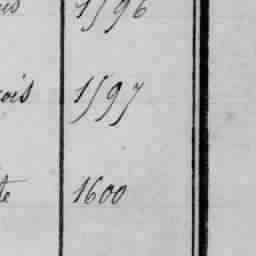 is 1596
ois 1597
te 1600